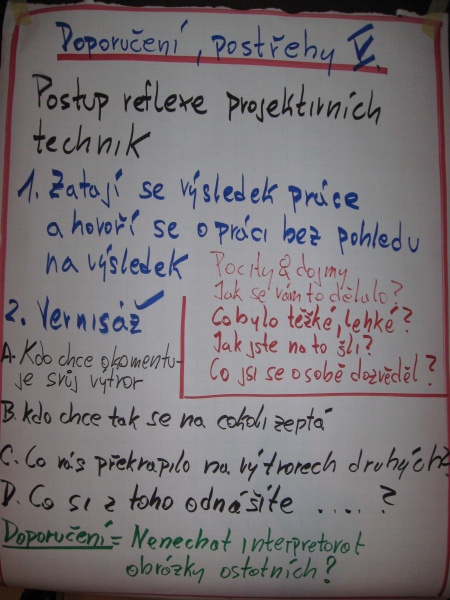 Doporučení, postřehy V.
Postup reflexe projektivních
technik
1. Zatají se výsledek práce
a hovoří se o práci bez pohledu
na výsledek
Pocity & dojmy
Jak se vám to dělalo?
Co bylo těžké, lehké?
Jak jste na to šli?
Co jsi se o sobě dozvěděl?
2. Vernisáž
A. Kdo chce okomentu-
je svůj výtvor
B. kdo chce tak se na cokoli zeptá
C. Co vás překvapilo na výtvorech druhých?
D. Co si z toho odnášíte ....?
Doporučení = Nenechat interpretovat
obrázky ostatních?